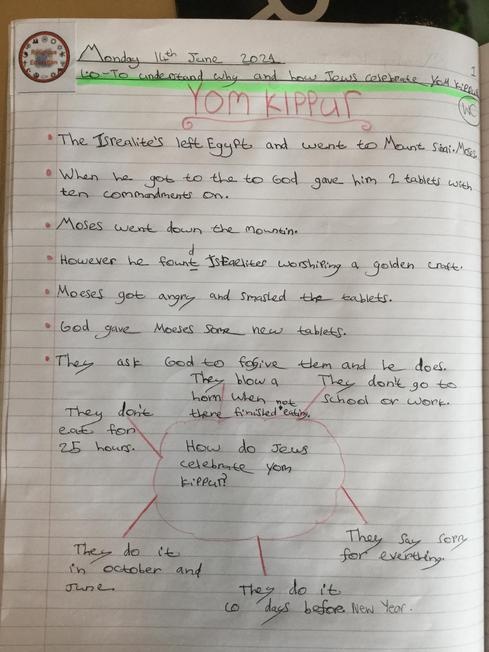 Religious Education
Monday 14th June 2021
1
LO-To understand why and how Jews celebrate Yom Kippur
WC
Yom Kippur
• The Isrealite's left Egypt and went to Mount Sinai. Moses.
• When he got to the to God gave him 2 tablets with
ten commandments on.
• Moses went down the mountin.
• However he fount d Israelites worshiping a golden craft.
• Moeses got angry and smashed the tablets.
• God gave Moeses some new tablets.
• They ask God to fogive them and he does.
They blow a
horn when not
there finished eating.
They don't go to
school or work.
They don't
eat for
25 hours.
How do Jews
celebrate yom
kippur?
They say sorry
for everthing.
They do it
in october and
June.
They do it
10 days before New Year.